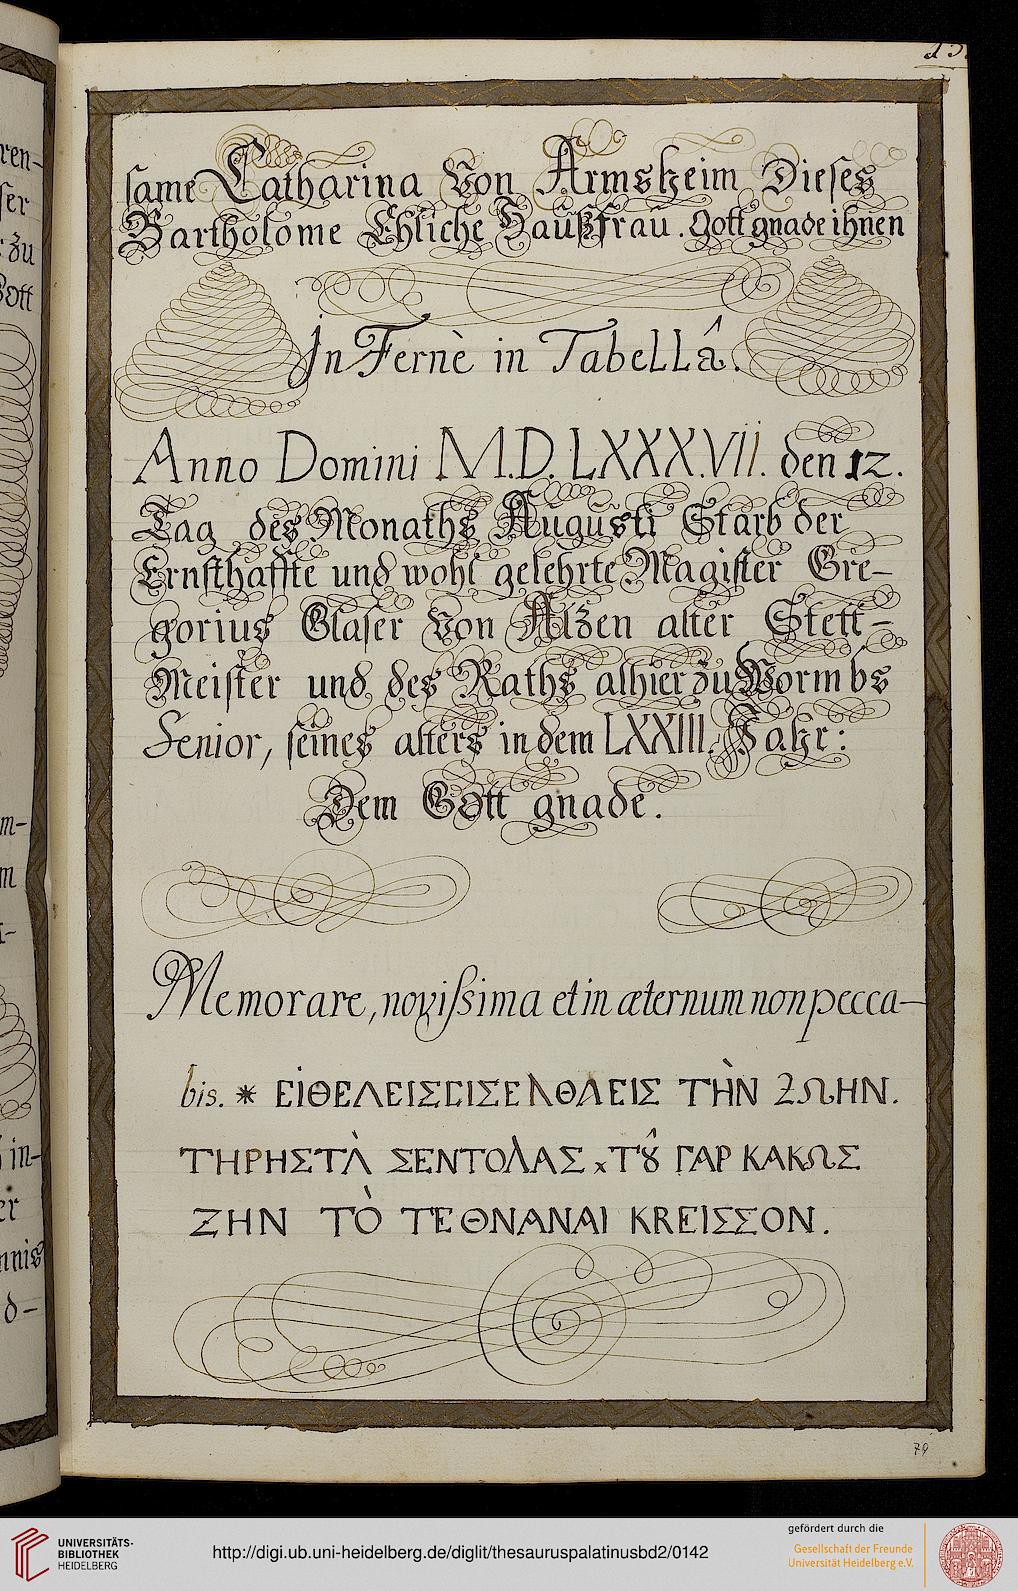 same Catharina Von Armsheim Dieses
Bartholome Ehliche Haußfrau. Gott gnade ihnen
In Fernè in Tabellâ.
Anno Domini M.D.LXXXVII. den 12.
Tag des Monaths Augusti Starb der
Ernsthaffte und wohl gelehrte Magister Gre-
gorius Glaser Von Alzen alter Stett-
Meister und des Raths alhier zu Wormbs
Senior, seines alters in dem LXXIII. Jahr:
Dem Gott gnade.
Memorare, novissima et in æternum non pecca-
bis. * ΕἰΘΕΛΕΙΣΕΙΣΕΛΘΛΕΙΣ ΤῊΝ ΖΩΗΝ.
ΤΗΡΗΣΤΛ̀ ΣΕΝΤΟΛΑΣ × Τȣ͂ ΓΑΡ ΚΑΚΩΣ
ΖΗΝ Τὸ ΤΕΘΝΑΝΑΙ ΚRΕΙΣΣΟΝ.
79
ren-
ser
zu
Gott
m-
m
in-
er
nnis
d-
UNIVERSITÄTS-
BIBLIOTHEK
HEIDELBERG
http://digi.ub.uni-heidelberg.de/diglit/thesauruspalatinusbd2/0142
gefördert durch die
Gesellschaft der Freunde
Universität Heidelberg e.V.